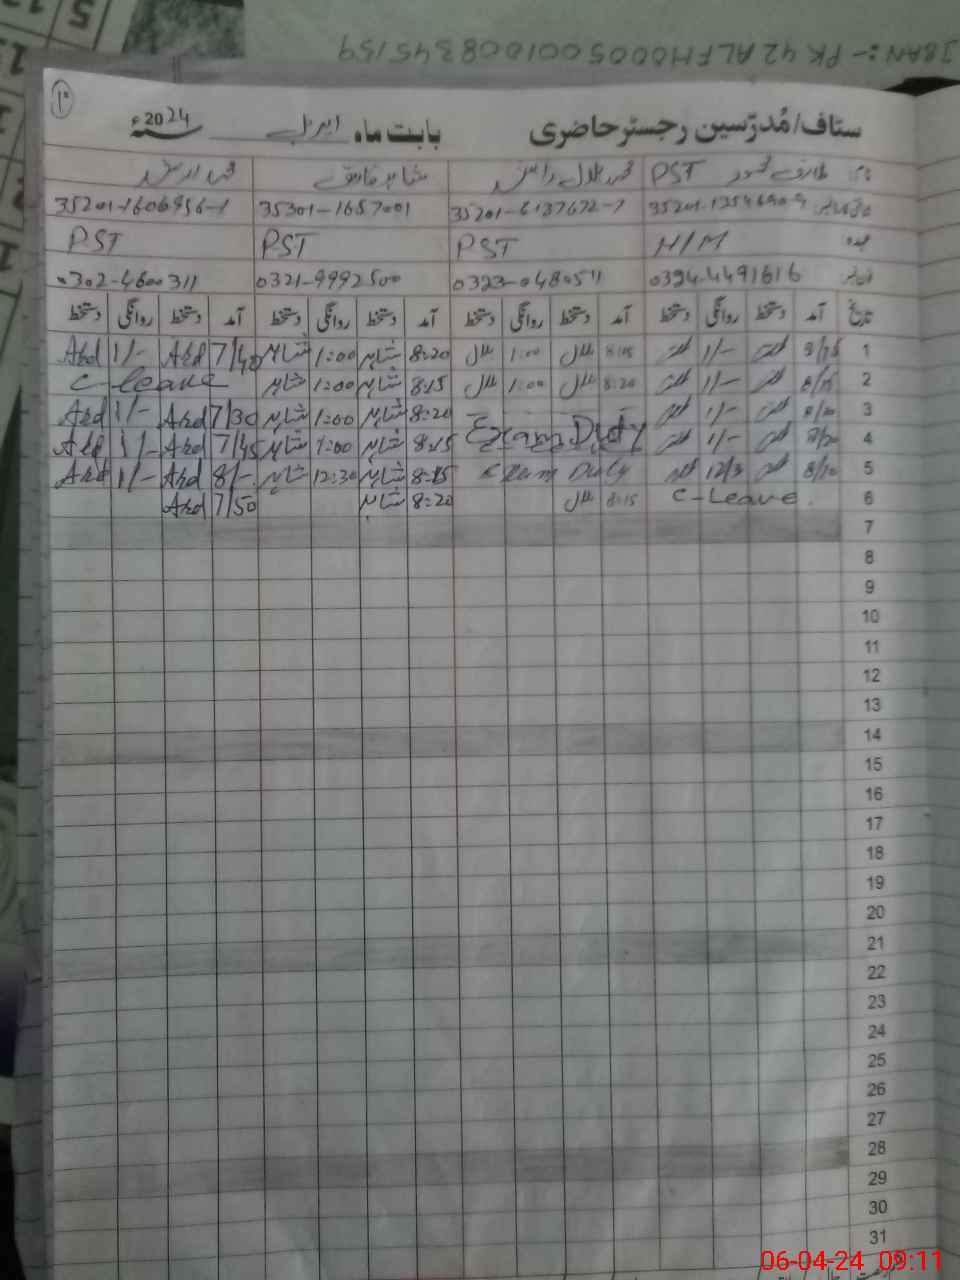 IBAN:- PK 42 ALFH0005001008345159
ستاف/مُدرّسین رجسٹر حاضری بابت ماہ اپریل سنہ 2024ء
نام PST طارق محمود محمد بلال شاہد فاروق محمد ارشد
35201-6137672-7 35301-1657001 35201-1606956-1
عہدہ H/M PST PST PST
0324-4491616 0323-0480511 0321-9992500 0302-4600311
تاریخ آمد دستخط روانگی دستخط آمد دستخط روانگی دستخط آمد دستخط روانگی دستخط آمد دستخط روانگی دستخط
1 1/- 8:15 بلال 1:00 بلال 8:20 شاہد 1:00 شاہد 7/40 Ard 1/- Ard
2 8/15 1/- 8:20 بلال 1:00 بلال 8:15 شاہد 1:00 شاہد C-leave
3 8/20 1/- Exam Duty 8:20 شاہد 1:00 شاہد 7/30 Ard 1/- Ard
4 1/- 8:15 شاہد 1:00 شاہد 7/45 Ard 1/- Ard
5 8/10 12/3 Exam Duty 8:15 شاہد 12:30 شاہد 8/- Ard 1/- Ard
6 C-Leave 8:15 بلال 8:20 شاہد 7/50 Ard
7
8
9
10
11
12
13
14
15
16
17
18
19
20
21
22
23
24
25
26
27
28
29
30
31
06-04-24 09:11